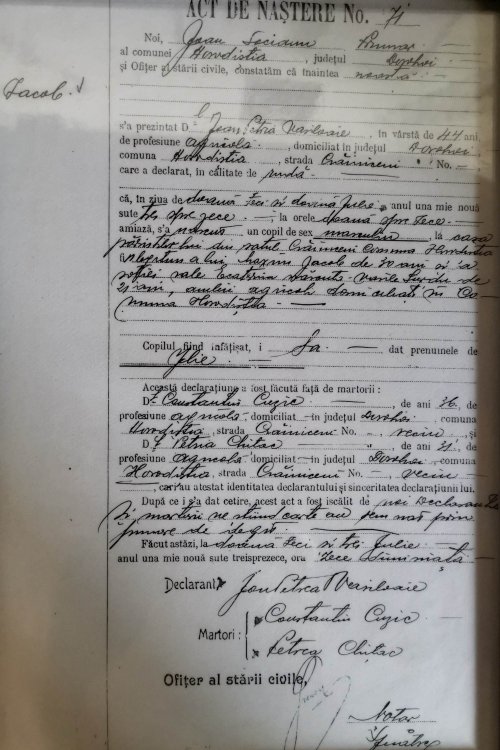 ACT DE NAŞTERE No. 71
Noi, Joan Primar
al comunei Horodistia, județul Dorohoi
și Ofițer al stării civile, constatăm că înaintea noastră
Iacob.
s'a prezintat D. Joan Petrea Vasiloaie, în vârstă de 44 ani
de profesiune agricola, domiciliat în județul Dorohoi,
comuna Horodistia, strada Crăiniceni No.
care a declarat, în calitate de rudă
că, în ziua de douăzeci si două Julie, anul una mie nouă
sute trei spre zece, la orele două spre zece
amiază, s'a născut un copil de sex masculin, la casa
părintilor lui din satul Crăiniceni Comuna Horodistia
a lui, Iacob de 30 ani si a
soției sale Ecaterina născută Vasile de
21 ani, amîi agricoli domiciliati în Co-
muna Horodistia
Copilul fiind înfățișat, i sa dat prenumele de
Ilie
Această declarațiune a fost făcută față de martorii:
D. Constantin Cuzic, de ani 36, de
profesiune agricola, domiciliat în județul Dorohoi, comuna
Horodistia, strada Crăiniceni No. vecin, și
D. Petrea Chitac, de ani
profesiune agricola, domiciliat în județul Dorohoi, comuna
Horodistia, strada Crăiniceni No. vecin
, cari au atestat identitatea declarantului și sinceritatea declarațiunii lui.
După ce i s'a dat cetire, acest act a fost iscălit de noi declarantele
si martorii ne stiind carte au semnat prin
punere de deget
Făcut astăzi, la douăzeci si trei Julie
anul una mie nouă sute treisprezece, ora zece dimineață
Declarant, Jon Petrea Vasiloaie
Constantin Cuzic
Martori:
Petrea Chitac
Ofițer al stării civile,
Notar